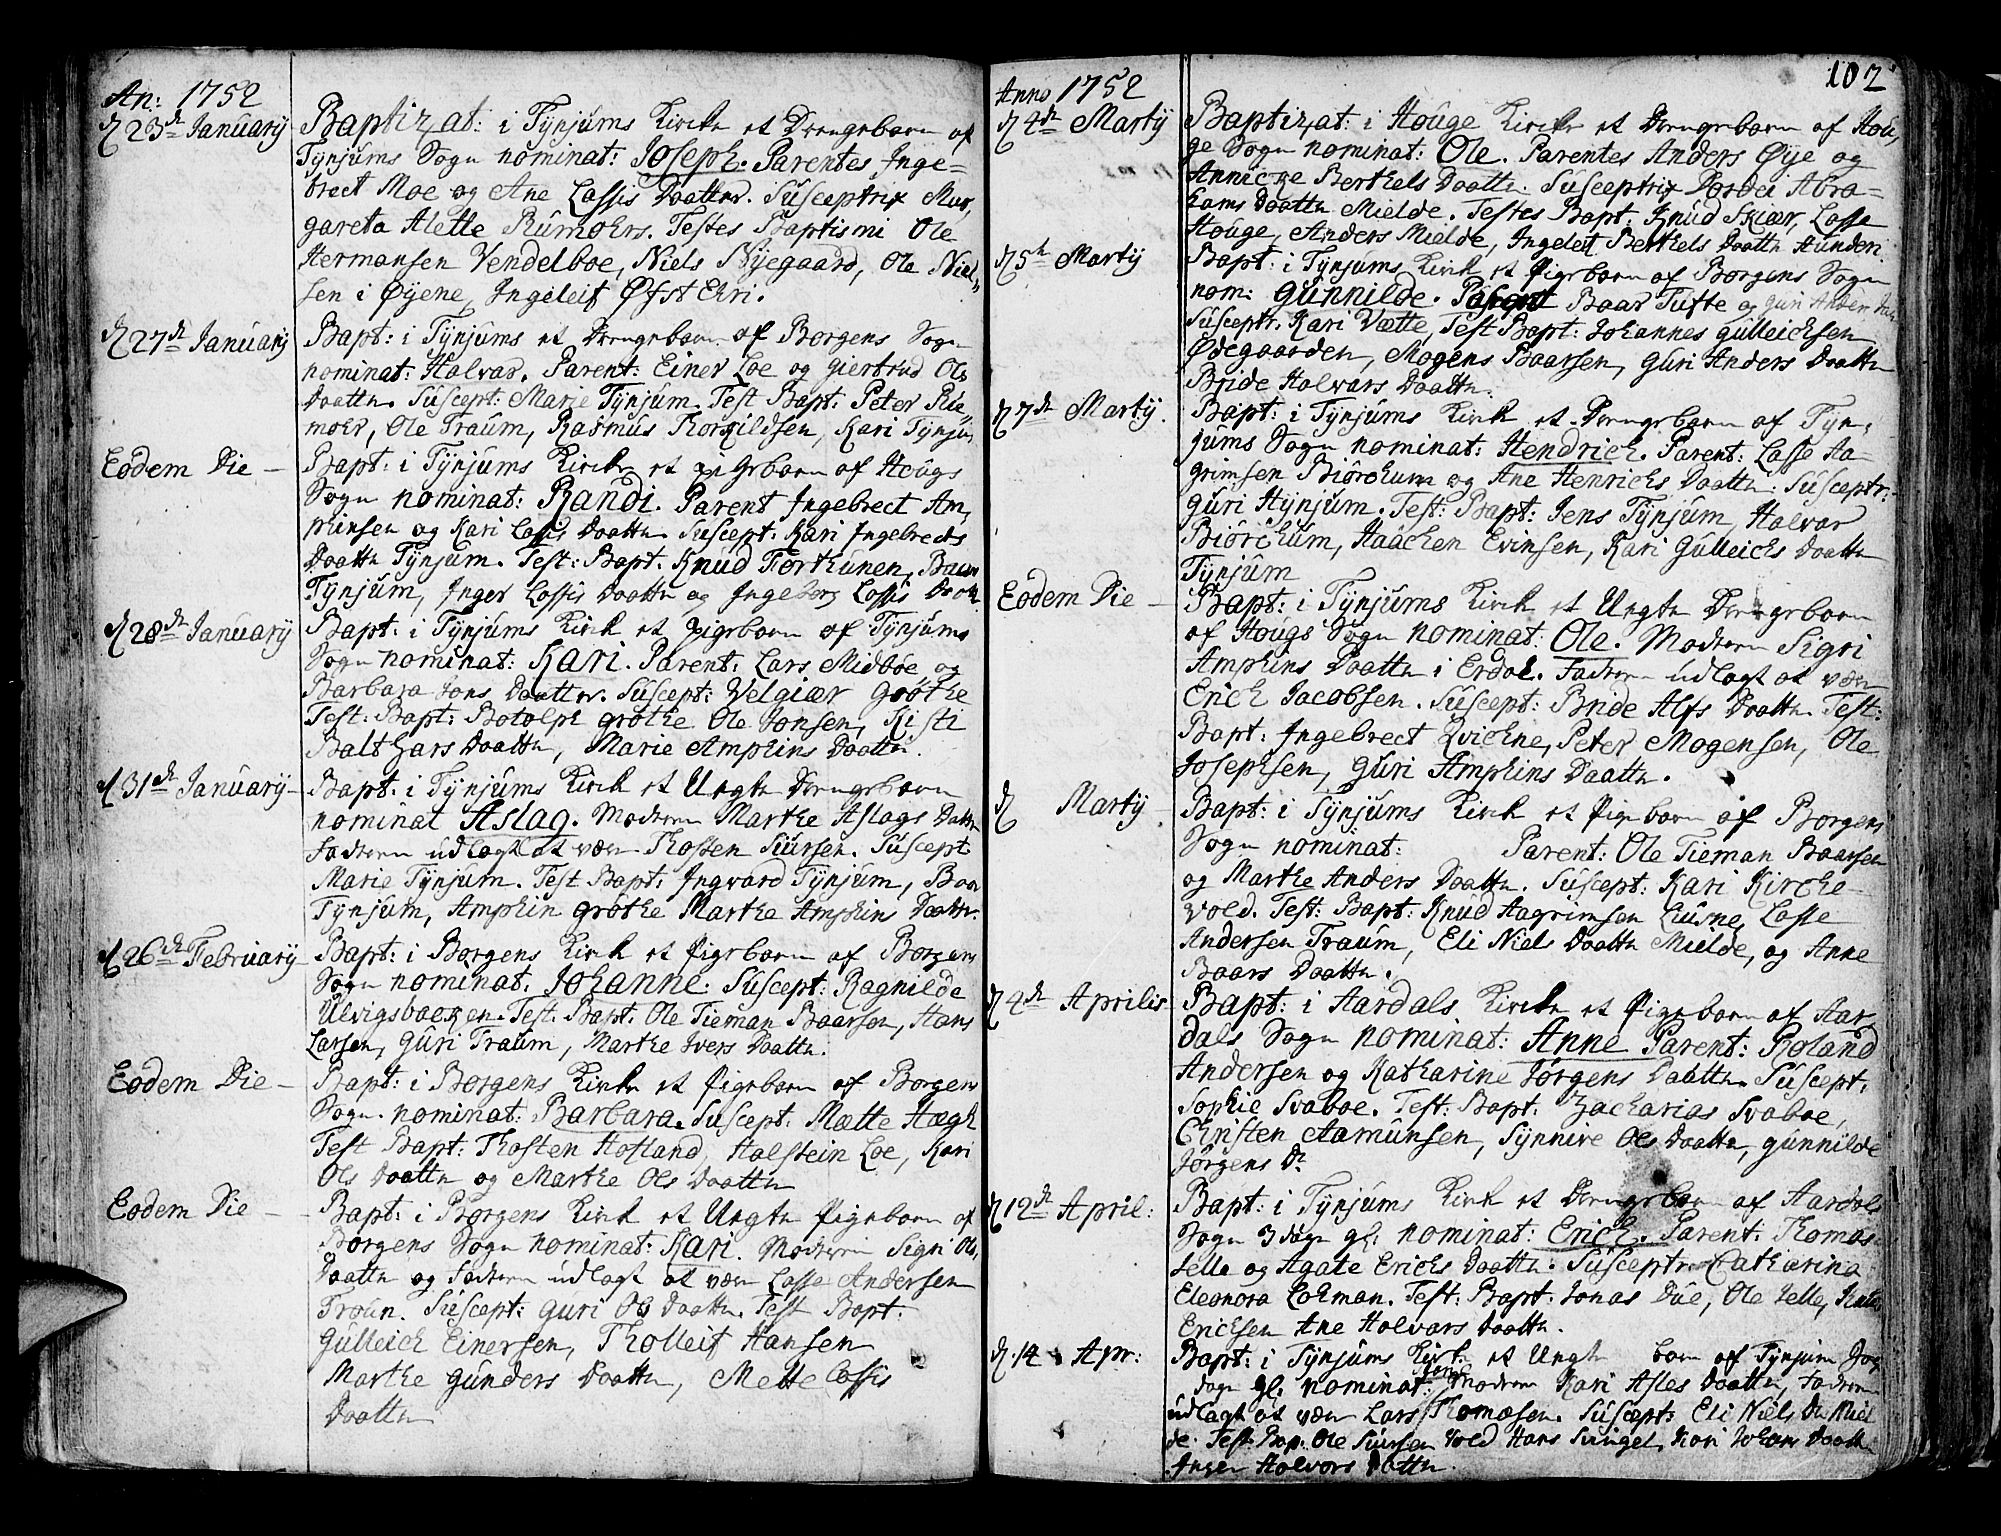 An: 1752
d 23de Januarij
Baptizat: i Tÿnjums Kircke et Drengebarn af
Tÿnjums Sogn nominat: Joseph. Parentes Inge-
brect Moe og Ane Lassis Daatter. Susceptrix Mar,
gareta Alette Rumohrs. Testes Baptismi Ole
Hermansen Vendelboe, Niels Nÿegaard, Ole Niel-
sen i Øÿene, Ingeleif Øfst Eri.
d 27de Januarij
Bapt: i Tÿnjums et Drengebarn af Borgens Sogn
nominat: Halvar. Parent: Einer Loe og Giertrud Ols
Daatter. Suscept: Marie Tÿnjum. Test Bapt: Peter Ru-
mohr, Ole Traum, Rasmus Thorkildsen, Kari Tÿnjum
Eodem Die -
Bapt: i Tÿnjums Kircke et pigebarn af Hougs
Sogn nominat: Randi. Parent Ingebrect Am,
phinsen og Kari Lassis Daatter. Suscept: Kari Ingebrects
Daatter Tÿnjum. Test: Bapt. Knud Forthunen, Baar
Tÿnjum, Inger Lassis Daatter og Ingeborg Lassis Daatter.
d 28de Januarij
Bapt: i Tÿnjums Kirck et pigebarn af Tÿnjums
Sogn nominat: Kari. Parent: Lars Midbøe og
Barbara Jons Daatter. Suscept: Velgiær Grøthe
Test: Bapt: Botolph Grøthe Ole Jonsen, Kisti
Balthzars Daatter, Marie Amphins Daatter.
d 31de Januarij -
Bapt: i Tÿnjums Kirck et Uegte Drengebarn
nominat Aslag. Moderen Marthe Aslags Datter
Faderen udlagt at være Thosten Siursen. Suscept
Marie Tÿnjum. Test Bapt: Ingvard Tÿnjum, Baar
Tÿnjum, Amphin Grøthe Marthe Amphins Daatter.
d 26de Februarij -
Bapt: i Borgens Kirck et Pigebarn af Borgens
Sogn nominat: Johanne. Suscept: Ragnilde
Ulvigsbacken. Test. Bapt. Ole Tieman Baarsen, Hans
Larsen, Guri Traum, Marthe Ivers Daatter.
Eodem Die -
Bapt: i Borgens Kircke et Pigebarn af Borgens
Sogn. nominat: Barbara. Suscept: Mætte Hægh
Test Bapt: Thosten Hofland, Halstein Loe, Kari
Ols Daatter og Marthe Ols Daatter
Eodem Die - -
Bapt: i Borgens Kirck et Uegte Pigebarn af
Borgens Sogn nominat: Kari. Moderen Sigri Ols,
Daatter og Faderen udlagt at være Lasse Andersen
Troun. Suscept: Guri Ols Daatter. Test Bapt:
Gulleich Einersen, Tholleif Hansen
Marthe Gunders Daatter, Mette Lassis
Daatter
102
Anno 1752
d 4de Martij
Baptizat: i Houge Kircke et Drengebarn af Hou,
ge Sogn nominat: Ole. Parentes Anders Øÿe og
Annicke Berthels Daatter. Susceptrix Dordei Abra-
hams Daatter Mielde. Testes Bapt: Knud Skiær, Lasse
Houge, Anders Mielde, Ingeleif Berthels Daatter Hunderi
d 5te Martij
Bapt: i Tÿnjums Kirck et Pigebarn af Borgens Sogn
nom: Gunnilde. Parent Baar Tufte og Guri Anders
Susceptr. Kari Vætte, Test Bapt: Johannes Gulleichsen
Ødegaarden, Mogens Baarsen, Guri Anders Daatter
Bride Halvars Daatter.
d 7de Martij.
Bapt: i Tÿnjums Kirck et Drengebarn af Tÿn,
jums Sogn nominat: Hendrich. Parent: Lasse Aa-
grimsen Biørchum og Ane Henrichs Daatter. Susceptr:
Guri Hÿnjum. Test: Bapt: Jens Tÿnjum, Halvar
Biørchum, Haachen Evinsen, Kari Gulleichs Daatter
Tÿnjum
Eodem Die -
Bapt: i Tÿnjums Kirck et Uegte Drengebarn
af Hougs Sogn nominat: Ole. Moderen Sigri
Amphins Daatter i Erdal. Faderen udlagt at være
Erich Jacobsen. Suscept: Bride Alfs Daatter. Test:
Bapt: Ingebrect Qvickne, Peter Mogensen, Ole
Josephsen, Guri Amphins Daatter.
d Martij -
Bapt: i Tÿnjums Kirck et Pigebarn af Borgens
Sogn nominat: Parent: Ole Tieman Baarsen
og Marthe Anders Daatter. Suscept: Kari Kircke-
vold. Test: Bapt: Knud Aagrimsen Liusne, Lasse
Andersen Traum, Eli Niels Daatter Mielde, og Anne
Baars Daatter.
d 4de Aprilis -
Bapt: i Aardals Kircke et Pigebarn af Aar
dals Sogn nominat: Anne Parent: Roland
Andersen og Katharine Jørgens Daatter. Suscept.
Sophie Svaboe. Test: Bapt. Zacharias Svaboe,
Christen Aamunsen, Sÿnnive Ols Daatter, Gunnilde
Jørgens Dr
d 12de April:
Bapt: i Tÿnjums Kirck et Drengebarn af Aardals
Sogn 3 dage gl: nominat: Erich. Parent: Thomas
Jelle og Agate Erichs Daatter. Susceptr. Catharina
Eleonora Lohman. Test: Bapt: Jonas Due, Ole Jelle,
Ericksen Ane Halvars Daatter.
d. 14 Apr:
Bapt: i Tÿnjums Kirk: et Uegte barn af Tÿnjum Sogn
dage gl: nominat: Moderen Kari Asles Daatter, Faderen
udlagt at være Lars Thomæsen. Suscept: Eli Niels Dr Miel
de. Test: Bap: Ole Siursen Vold Hans Kari Johans Daatter
Inger Halvors Datter.